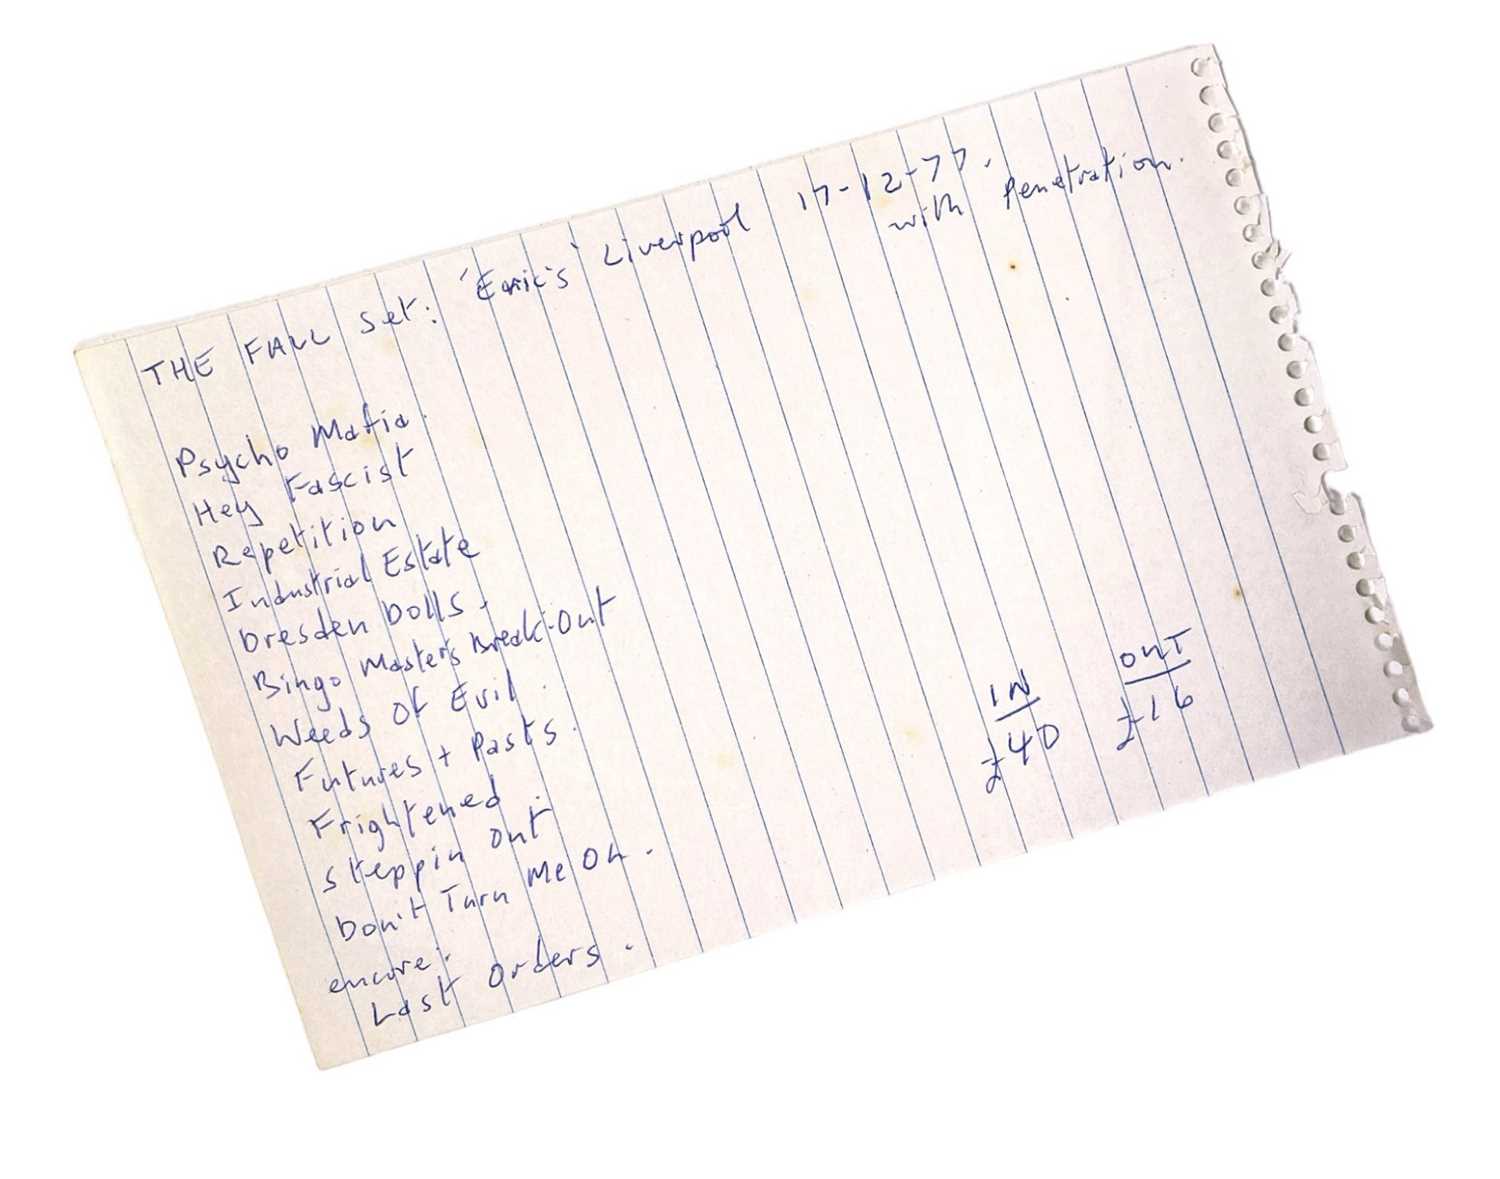 THE FALL set: 'Eric's' Liverpool 17-12-77.
with Penetration.
Psycho Mafia.
Hey Fascist
Repetition
Industrial Estate
Dresden Dolls.
Bingo Master's Break-Out
Weeds Of Evil.
Futures + Pasts.
Frightened.
Steppin Out
Don't Turn Me On.
encore:
Last Orders.
IN OUT
£40 £16